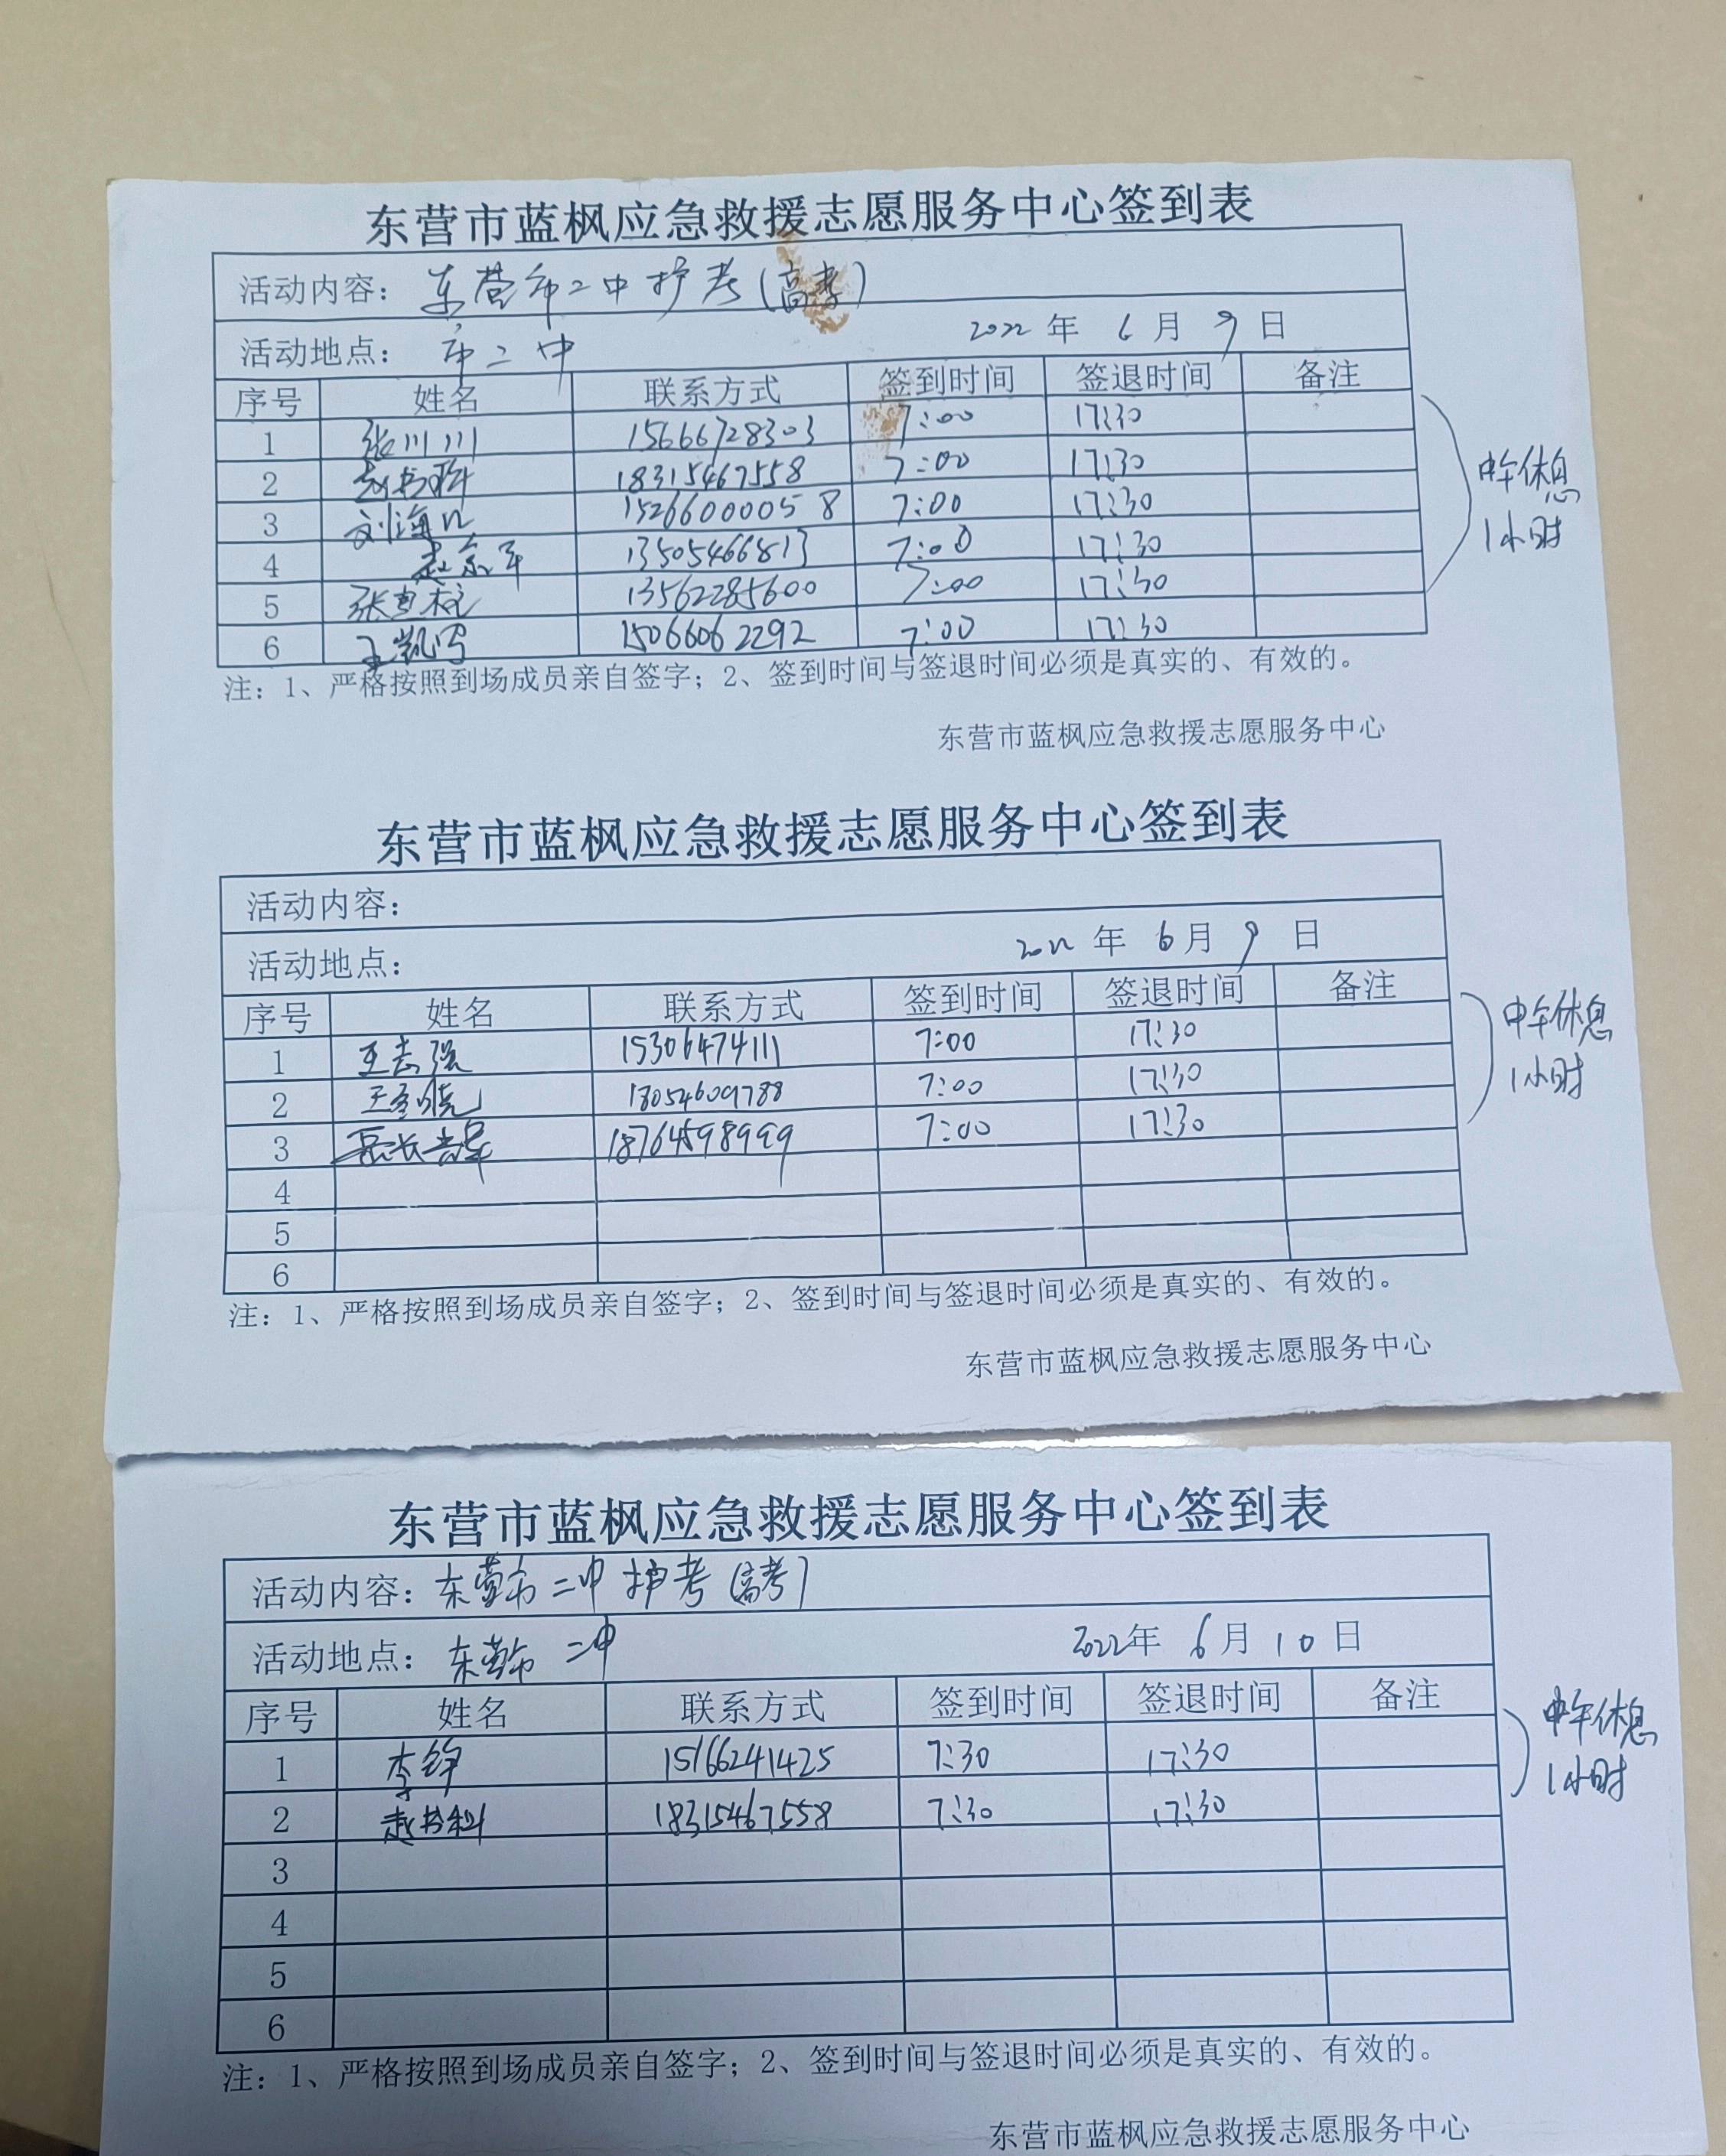 东营市蓝枫应急救援志愿服务中心签到表
活动内容：东营市二中护考（高考）
活动地点：市二中 2022年6月9日
序号 姓名 联系方式 签到时间 签退时间 备注
1 张川川 15666728303 7:00 17:30
2 赵书科 18315467558 7:00 17:30
3 刘海 15266000058 7:00 17:30
4 赵 13505466813 7:00 17:30
5 张 13562285600 7:00 17:30
6 王凯 15066062292 7:00 17:30
中午休息
1小时
注：1、严格按照到场成员亲自签字；2、签到时间与签退时间必须是真实的、有效的。
东营市蓝枫应急救援志愿服务中心
东营市蓝枫应急救援志愿服务中心签到表
活动内容：
活动地点： 2022年6月9日
序号 姓名 联系方式 签到时间 签退时间 备注
1 王志强 15306474111 7:00 17:30
2 王 18054609788 7:00 17:30
3 岳长 18764598999 7:00 17:30
4
5
6
中午休息
1小时
注：1、严格按照到场成员亲自签字；2、签到时间与签退时间必须是真实的、有效的。
东营市蓝枫应急救援志愿服务中心
东营市蓝枫应急救援志愿服务中心签到表
活动内容：东营市二中护考（高考）
活动地点：东营市二中 2022年6月10日
序号 姓名 联系方式 签到时间 签退时间 备注
1 李 15166241425 7:30 17:30
2 赵书科 18315467558 7:30 17:30
3
4
5
6
中午休息
1小时
注：1、严格按照到场成员亲自签字；2、签到时间与签退时间必须是真实的、有效的。
东营市蓝枫应急救援志愿服务中心